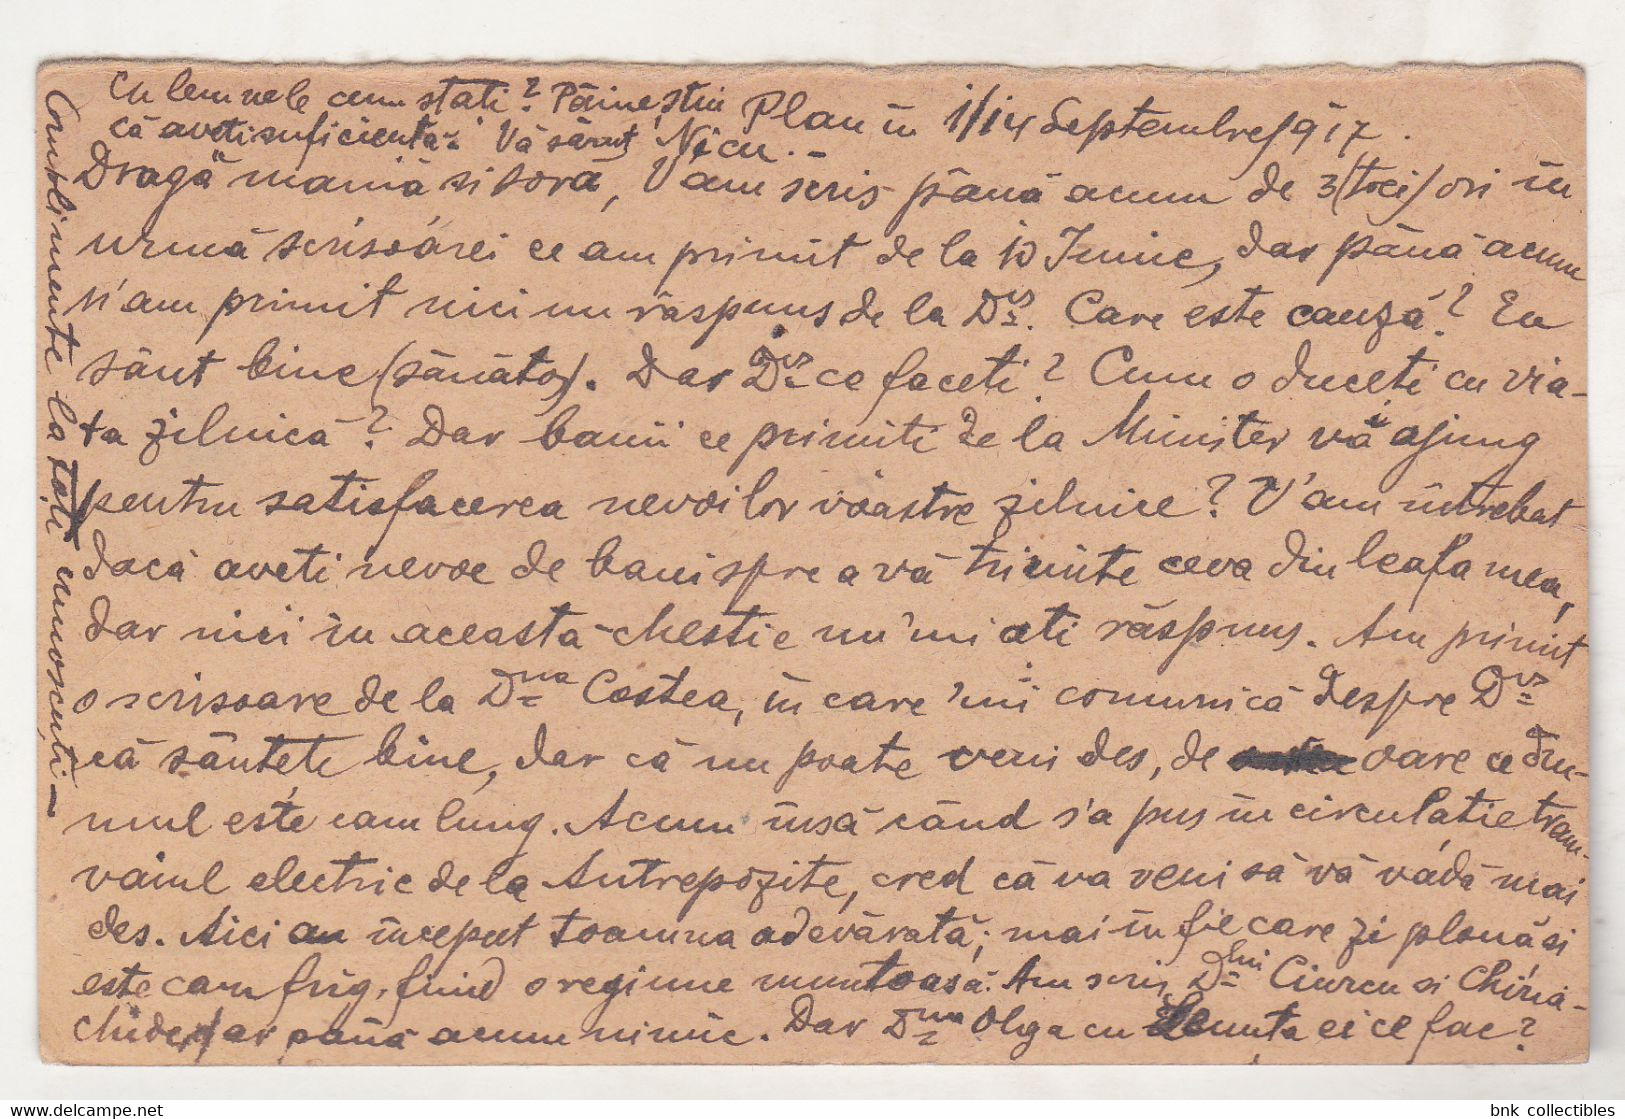 Cu lemnele cum stati? Pâine știu
că aveti suficientă. Vă sărut Nicu. –
Plau în 1/14 Septembre/917.
Dragă mamă si soră, V'am scris până acum de 3/trei/ori în
urmă scrisoarei ce am primit de la 10 Iunie, dar până acum
n'am primit nici un răspuns de la Dvs. Care este cauză? Eu
sânt bine (sănătos). Dar Dvs ce faceti? Cum o duceti cu via-
ta zilnică? Dar banii ce primiti de la Minister vă ajung
pentru satisfacerea nevoilor voastre zilnice? V'am întrebat
dacă aveti nevoe de bani spre a vă trimite ceva din leafa mea,
dar nici în aceasta chestie nu 'mi ati răspuns. Am primit
o scrisoare de la Dna Costea, în care 'mi comunică despre Dvs
că sânteti bine, dar că nu poate veni des, de oare ce dru-
mul este cam lung. Acum însă când s'a pus în circulatie tram-
vaiul electric de la Antrepozite, cred că va veni să vă vadă mai
des. Aici au început toamna adevărată; mai în fie care zi plouă si
este cam frig, fiind o regiune muntoasă. Am scris Dlui Ciurcu si Chiria-
chide, dar până acum nimic. Dar Dna Olga cu Lenuța ei ce fac?
Conplimente la toți cunoscuți –
bnk collectibles